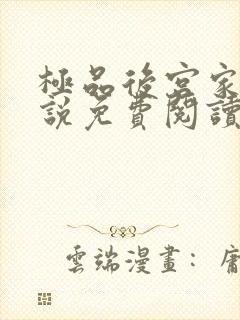 極品後宮家
說免費閱讀
雲端漫畫：